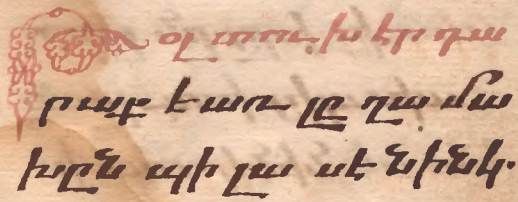 Թօլ տու խ էր դա
րաք է առ լը ղա մա
խըն պի լա սէ նինկ.